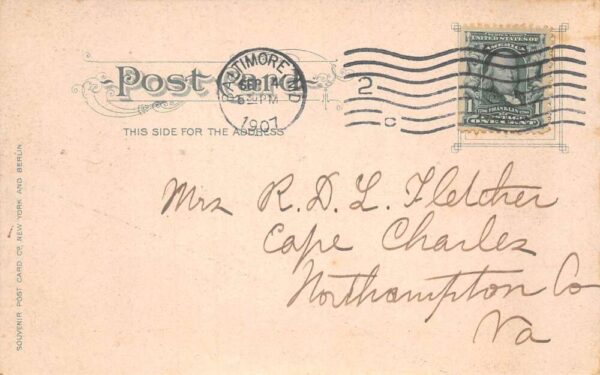 Post Card
THIS SIDE FOR THE ADDRESS
BALTIMORE, MD
SEP 14
PM
1907
2
UNITED STATES OF
AMERICA
1 FRANKLIN 1
POSTAGE
ONE CENT
Mrs R. D. L. Fletcher
Cape Charles
Northampton Co
Va
SOUVENIR POST CARD CO. NEW YORK AND BERLIN.